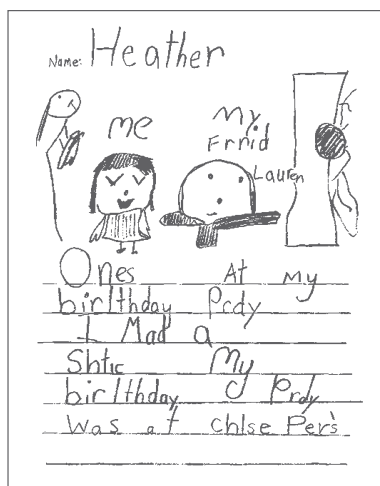 Name: Heather
me
my
Frnid
Lauren
Ones At my
birlthday Prdy
I Mad a
Shtic My
birlthday Prdy
was at chlse Per's